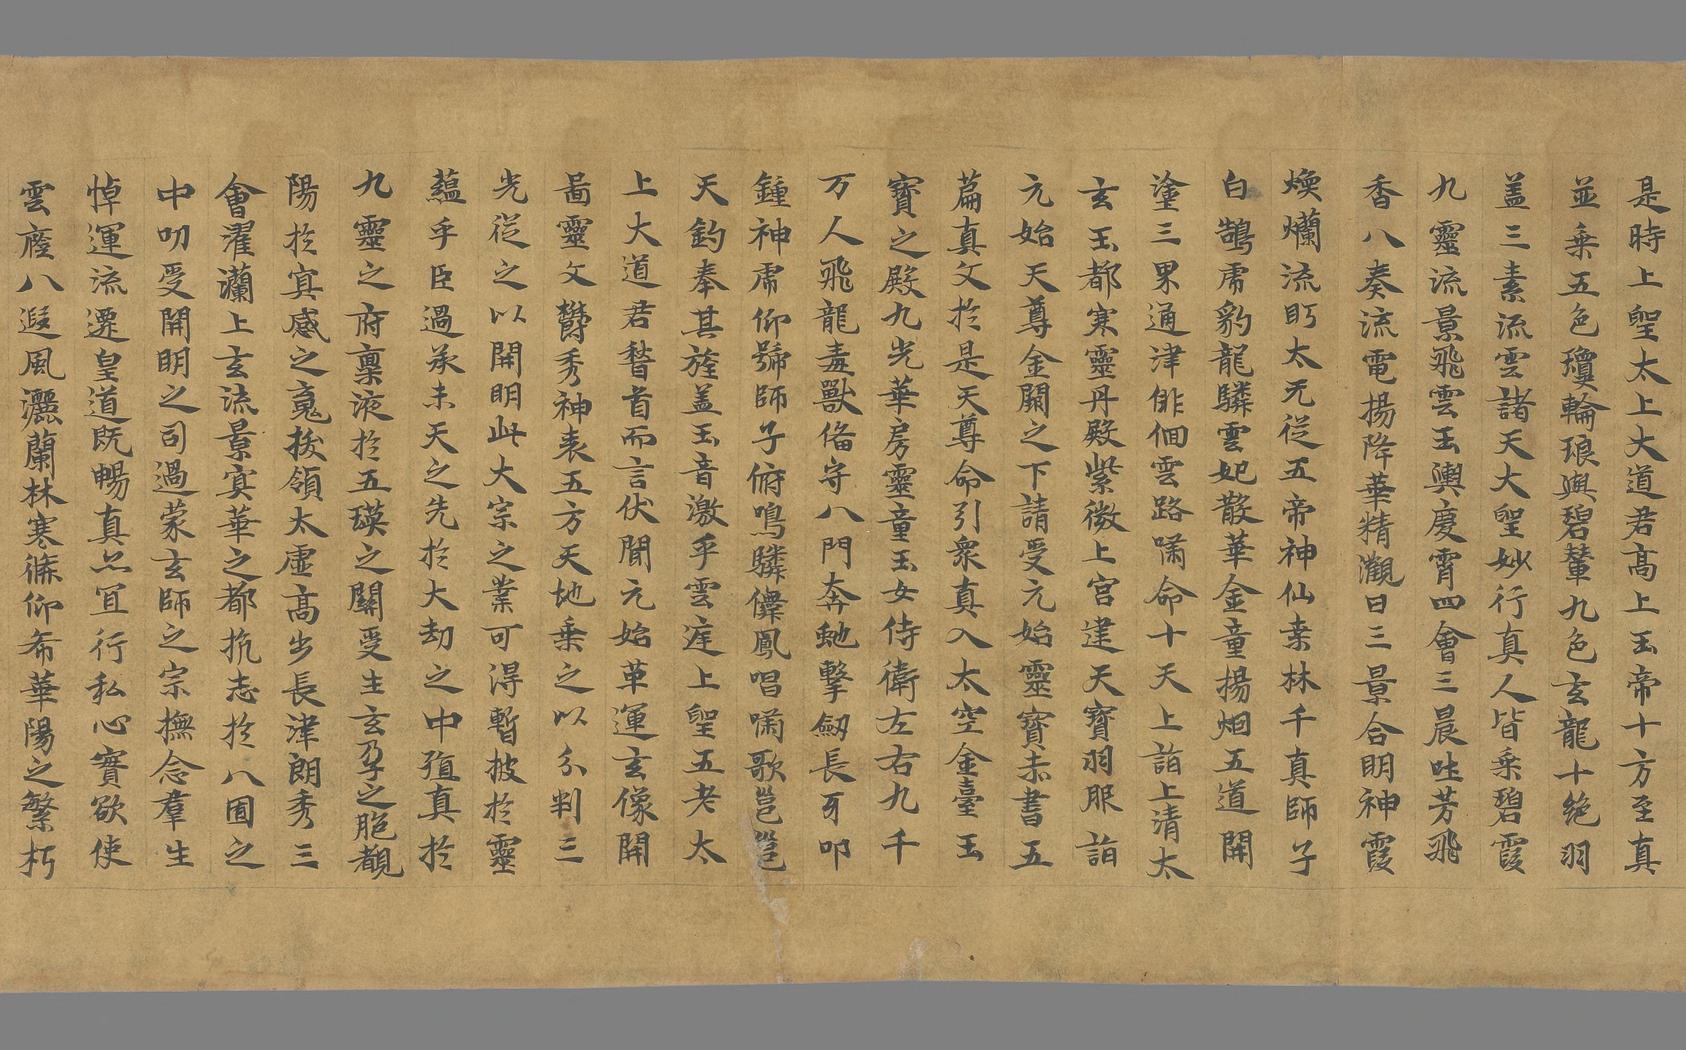 是時上聖太上大道君高上玉帝十方至真
並乗五色瓊輪琅輿碧輦九色玄龍十絶羽
盖三素流雲諸天大聖妙行真人皆乗碧霞
九靈流景飛雲玉輿慶霄四會三晨吐芳飛
香八奏流電揚降華精灑日三景合明神霞
煥爛流眄太无從五帝神仙桒林千真師子
白鵠虎豹龍驎雲妃散華金童揚烟五道開
塗三界通津徘徊雲路嘯命十天上詣上清太
玄玉都寒靈丹殿紫微上宫建天寳羽服詣
元始天尊金闕之下請受元始靈寳赤書五
篇真文扵是天尊命引衆真入太空金臺玉
寳之殿九光華房靈童玉女侍衛左右九千
万人飛龍毒獸俻守八門奔虵擊劒長牙叩
鍾神虎仰號師子俯鳴驎儛鳳唱嘯歌邕邕
天鈞奉其旌盖玉音激乎雲庭上聖五老太
上大道君稽首而言伏聞元始革運玄像開
啚靈文欝秀神表五方天地乗之以分判三
光從之以開明此大宗之業可得暫披扵靈
蘊乎臣過承未天之先扵大劫之中殖真扵
九靈之府禀液扵五瑛之關受生玄孕之胞覩
陽扵寘感之魂拔領太虚高步長津朗秀三
會濯瀾上玄流景寘華之都抗志扵八圊之
中叨受開明之司過蒙玄師之宗撫念羣生
悼運流遷皇道既暢真亦宜行私心實欲使
雲廕八遐風灑蘭林寒條仰希華陽之繁朽